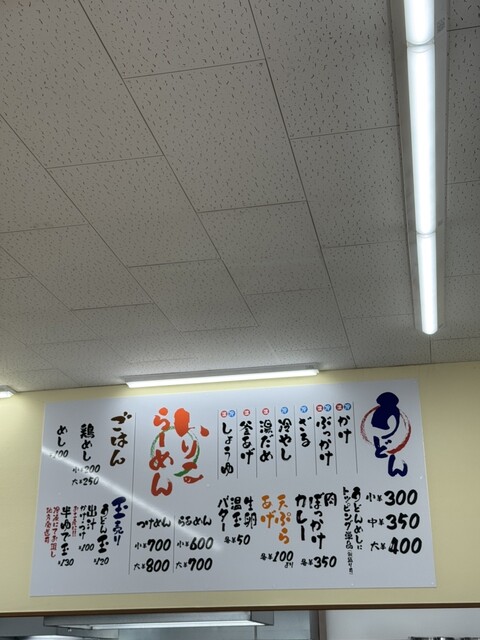 うどん
温 冷 かけ
温 冷 ぶっかけ
冷 ざる
冷 冷やし
温 湯だめ
温 釜あげ
温 冷 しょうゆ
小¥300
中¥350
大¥400
うどんめしに
トッピング
肉
ぼっかけ
カレー
各¥350
天ぷら
あげ
各¥100より
生卵
温玉
バター
各¥50
らーめん
らぁめん
小¥600
大¥700
つけめん
小¥700
大¥800
ごはん
鶏めし
小¥200
大¥250
めし
¥100
玉売り
うどん玉
¥120
出汁
¥100
半ゆで玉
¥130